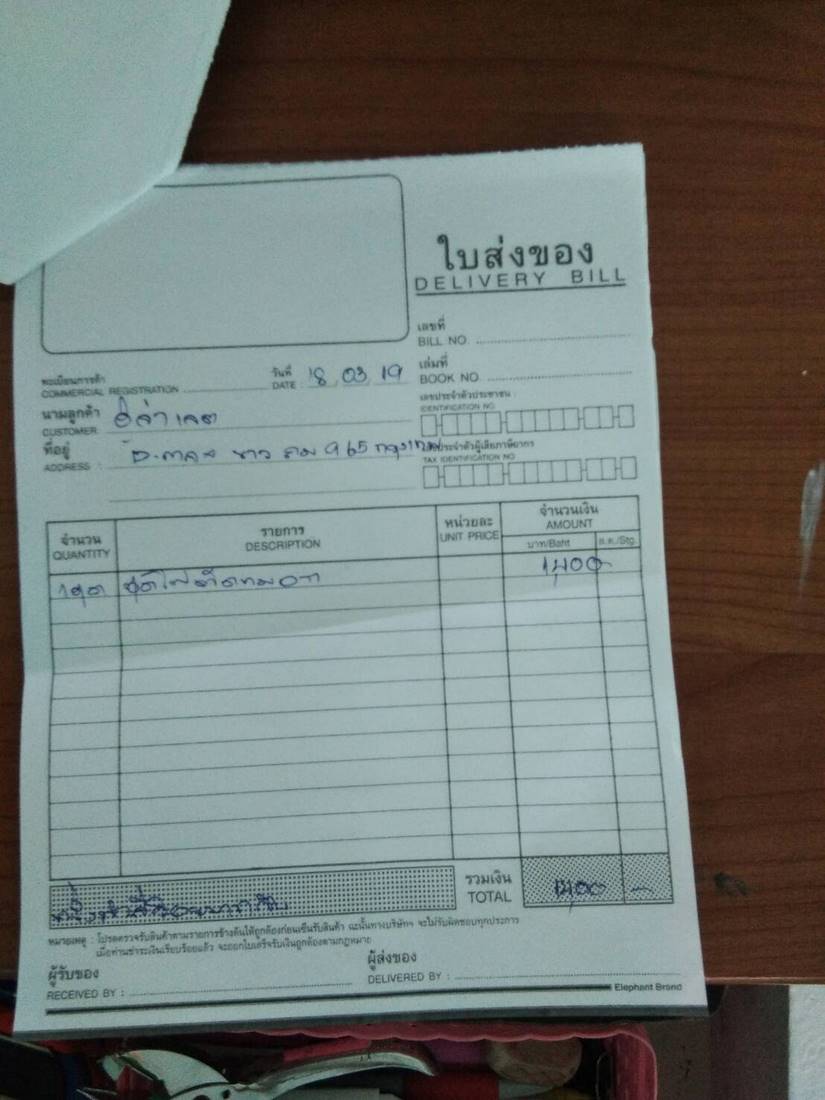 ใบส่งของ
DELIVERY BILL
เลขที่
BILL NO.
ทะเบียนการค้า
COMMERCIAL REGISTRATION
วันที่ 18 03 19
DATE :
เล่มที่
BOOK NO.
นามลูกค้า
CUSTOMER
เลขประจำตัวประชาชน :
IDENTIFICATION NO.
ที่อยู่
ADDRESS :
965
ประจำตัวผู้เสียภาษีอากร
TAX IDENTIFICATION NO
จำนวน
QUANTITY
รายการ
DESCRIPTION
หน่วยละ
UNIT PRICE
จำนวนเงิน
AMOUNT
บาท/Baht ส.ต./Stg.
1ชุด 1,400 -
รวมเงิน
TOTAL
1,400 -
หนึ่งพันสี่ร้อยบาท
หมายเหตุ : โปรดตรวจรับสินค้าตามรายการข้างต้นให้ถูกต้องก่อนเซ็นรับสินค้า ฉะนั้นทางบริษัทฯ จะไม่รับผิดชอบทุกประการ
เมื่อท่านชำระเงินเรียบร้อยแล้ว จะออกใบเสร็จรับเงินถูกต้องตามกฎหมาย
ผู้รับของ
RECEIVED BY :
ผู้ส่งของ
DELIVERED BY :
Elephant Brand